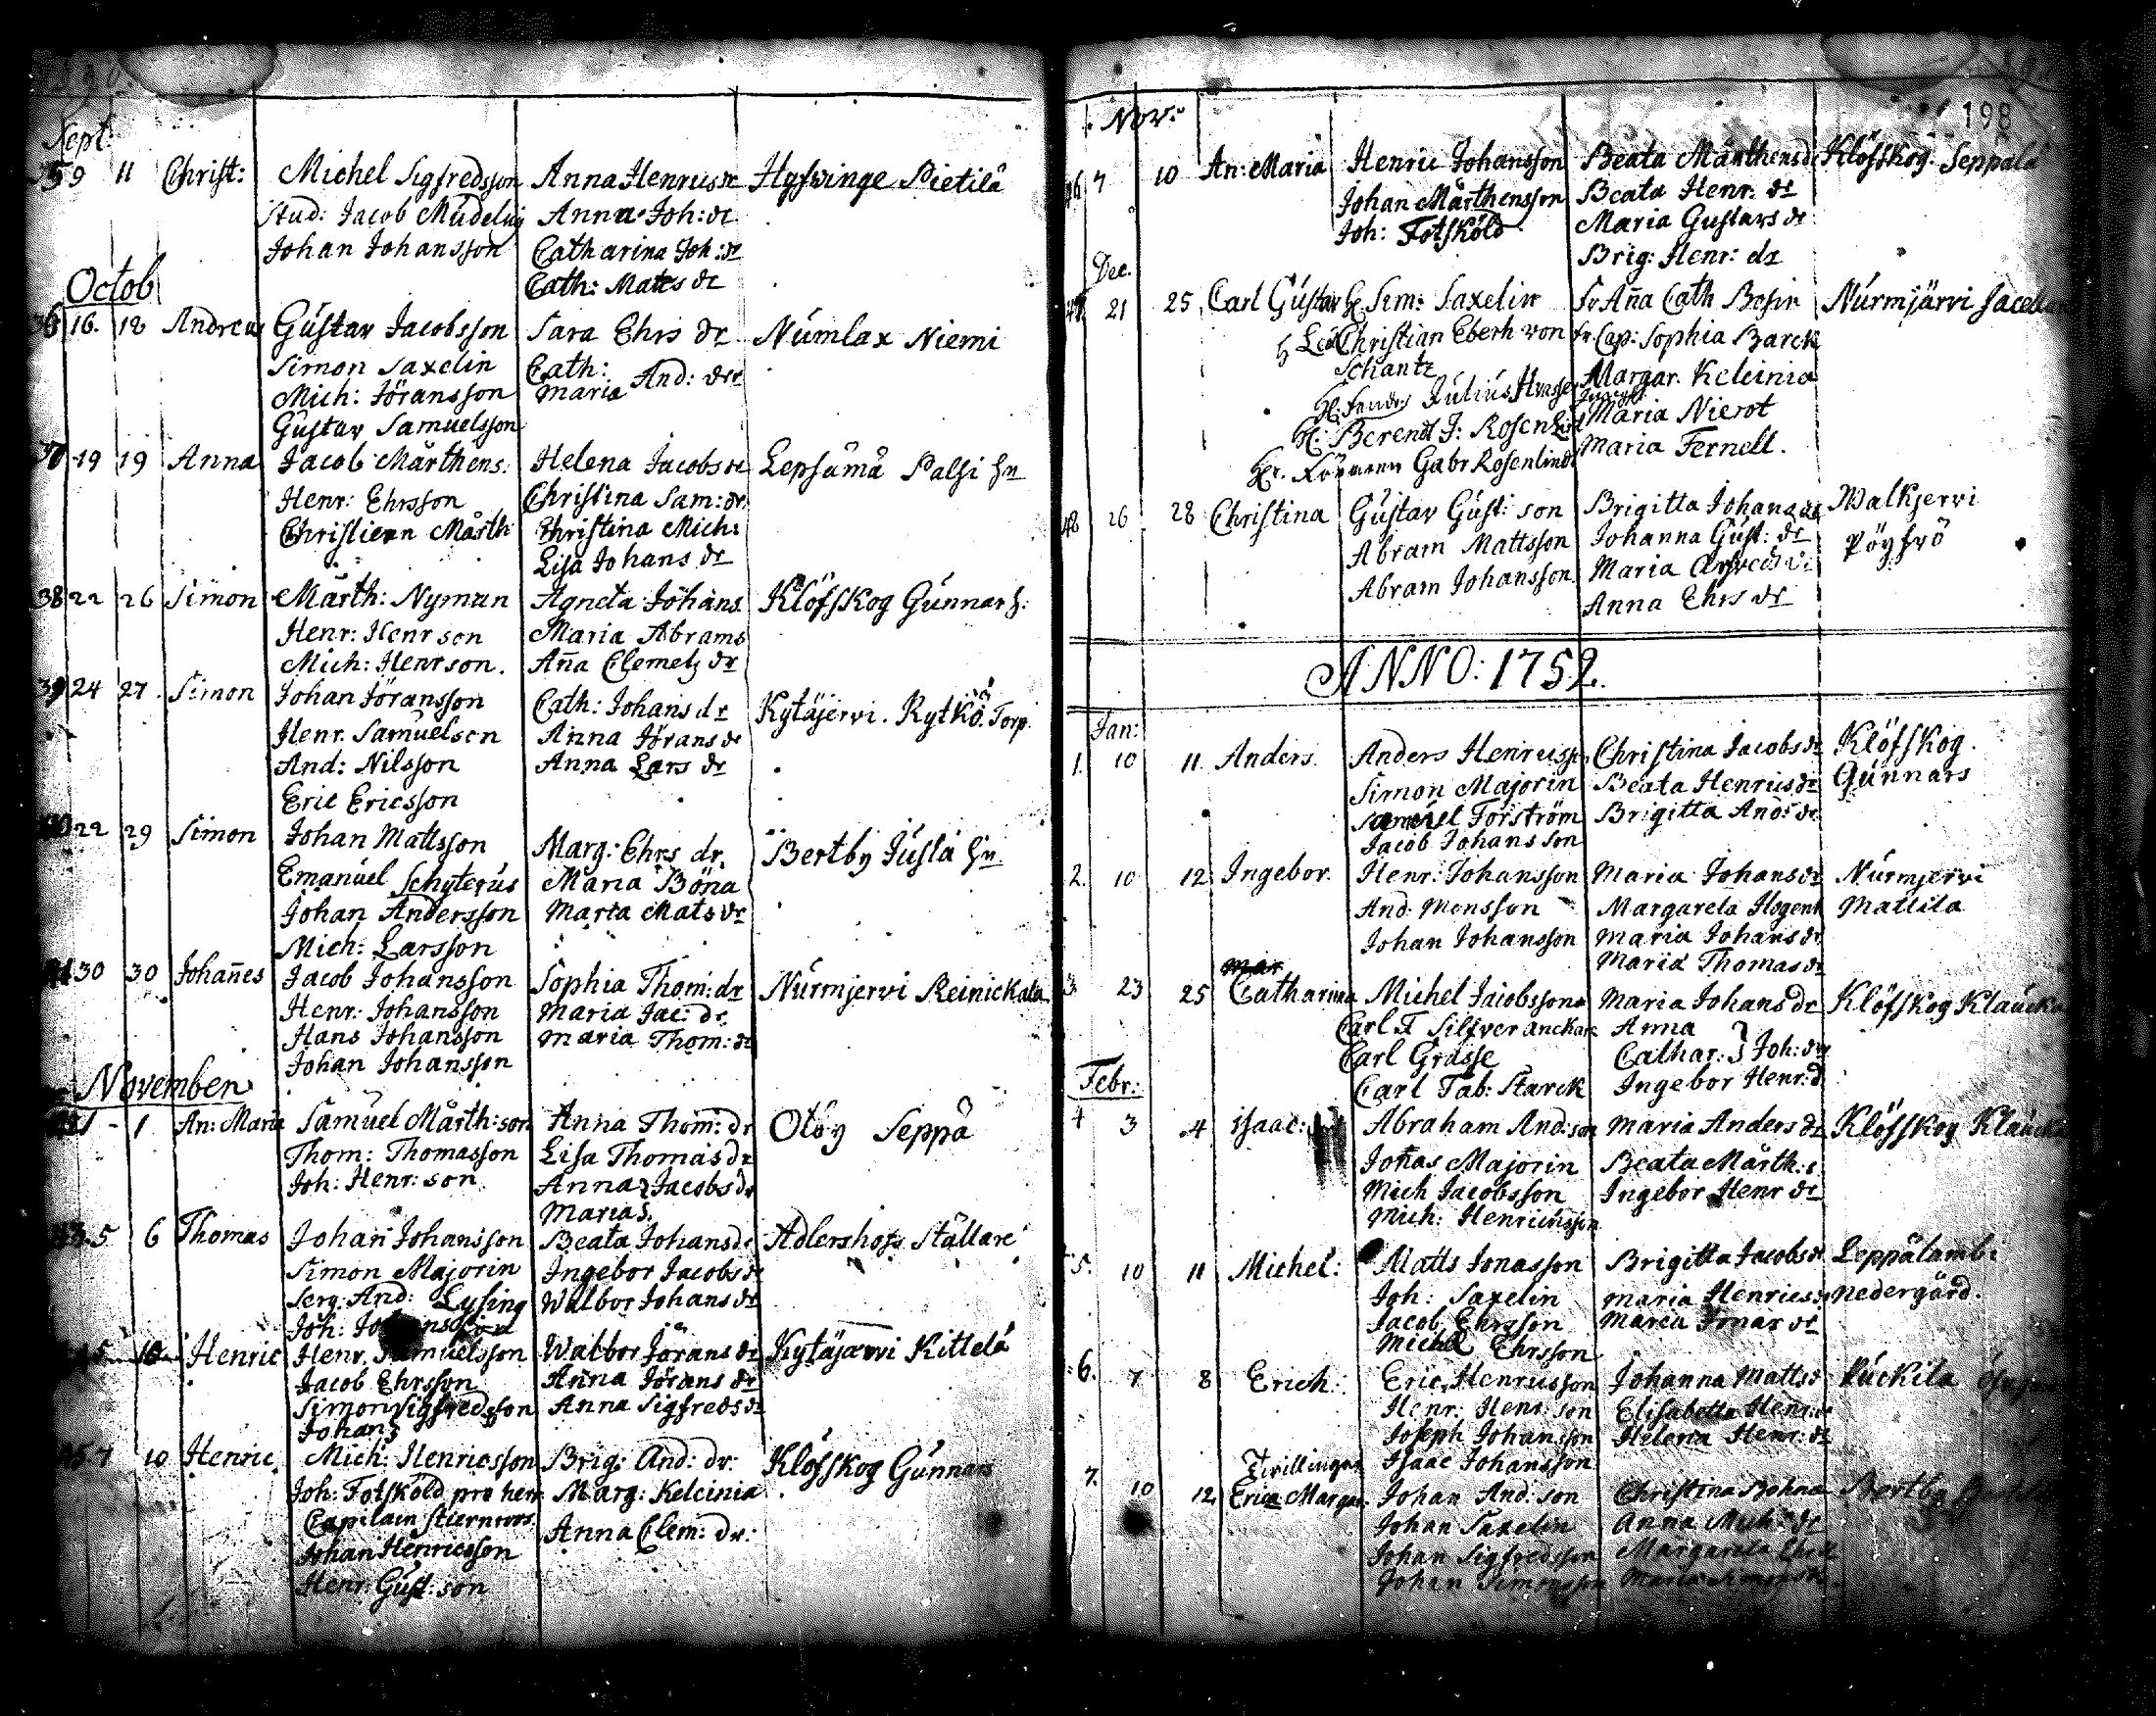 Sept:
9 11 Christ: Michel Sigfredsson Anna Henrics dr Hyfvinge Pietilä
Stud: Jacob Mudelig Anna Joh: dr
Johan Johansson Catharina Joh: dr
Cath: Matts dr
Octob
36 16. 18 Andreus Gustav Jacobsson Sara Ehrs dr Numlax Niemi
Simon Saxelin Cath:
Mich: Jöransson Maria And: drr
Gustav Samuelsson
37 19 19 Anna Jacob Mårthens: Helena Jacobs dr Lepsämä Palsi hn
Henr: Ehrsson Christina Sam: dr
Christiern Mårth: Christina Mich:
Lisa Johans dr
38 22 26 Simon Mårth: Nyman Agneta Johans Klöfskog Gunnars h:
Henr: Henr son Maria Abrams
Mich: Henr son. Aña Clemets dr
39 24 27. Simon Johan Jöransson Cath: Johans dr Kytäjervi. Rytkö. Torp.
Henr. Samuelson Anna Jörans dr
And: Nilsson Anna Lars dr
Eric Ericsson
22 29 Simon Johan Mattsson Marg: Ehrs dr. Bertby Jusla hn.
Emanuel Schyterus Maria Böna
Johan Andersson Marta Mats dr
Mich: Larsson
30 30 Johañes Jacob Johansson Sophia Thom: dr Nurmjervi Reinickala
Henr: Johansson Maria Jac: dr
Hans Johansson Maria Thom: dr
Johan Johansson
November
1 - 1 An: Maria Samuel Mårth: son Anna Thom: dr Olby Seppä
Thom: Thomasson Lisa Thomas dr
Joh: Henr: son Anna } Jacobs dr
Maria }.
43. 5 6 Thomas Johan Johansson Beata Johans dr Adlershofs Stallare
Simon Majorin Ingebor Jacobs dr
Serg: And: Lysing Walbor Johans dr
Joh: Johansson
5 10 Henric Henr. Samuelsson Walbor Jörans dr Kytäjærvi Kittelä
Jacob Ehrsson Anna Jörans dr
Simon Sigfredsson Anna Sigfreds dr
Johan }
45. 7 10 Henric Mich: Henricsson Brig: And: dr: Klöfskog Gunnars
Joh: Fotsköld pro herr Marg: Kelcinia
Capitain Stiernvos. Anna Clem: dr:
Johan Henricsson
Henr. Gust: son
198
Nov:
46 7 10 An: Maria Henric Johansson Beata Mårthens dr Klöfskog. Seppälä
Johan Mårthensson Beata Henr: dr
Joh: Fotsköld Maria Gustavs dr
Brig: Henr: dr
Dec.
47. 21 25. Carl Gustav H. Sim: Saxelin Fr Aña Cath Bosin Nurmjärvi Sacellan
Christian Eberh von Fr. Cap: Sophia Barck
Schantz Margar. Keleinia
Julius
H: Berendt J: Rosenlind Maria Nierot
Gabr Rosenlind Maria Fernell.
48 26 28 Christina Gustav Gust: son Brigitta Johans dr Walkjervi
Abram Mattsson Johanna Gust: dr Pöyfrö
Abram Johansson Maria
Anna Ehrs dr
ANNO: 1752.
Jan:
1. 10 11. Anders. Anders Henrcsson Christina Jacobs dr Klöfskog.
Simon Majorin Beata Henrics dr Gunnars
Samuel Forström Brigitta And: dr
Jacob Johansson
2. 10 12 Ingebor. Henr: Johansson Maria Johans dr Nurmjervi
And: Monsson Margareta Matlila
Johan Johansson Maria Johans dr
Maria Thomas dr
mar
3. 23 25 Catharina Michel Jacobsson Maria Johans dr Klöfskog Klaucka
Carl F Silfveranckar Anna
Carl Grasse Cathar: } Joh: drr
Carl Fab: Starck Ingebor Henr: d
Febr:
4 3 4 Isaac: Abraham And: son Maria Anders dr Klöfskog Klaucka
Jonas Majorin Beata Mårth:
Mich Jacobsson Ingebor Henr dr
Mich: Henricsson
5. 10 11 Michel: Matts Jonasson Brigitta Jacobs dr Leppälambi
Joh: Saxelin Maria Henrics dr nedergård.
Jacob Ehrsson Maria
Michel Ehrsson
6. 7 8 Erich: Eric Henricsson Johanna Matts d Puckila
Henr: Henr: son Elisabetta Henr: dr
Joseph Johansson Helena Henr: dr
Tvillingar Isaac Johansson
7. 10 12 Erica Margar. Johan And: son Christina Johna Bertby
Johan Saxelin Anna Mich: dr
Johan Sigfredsson Margareta Ehr dr
Johan Simonsson Maria Simons dr.